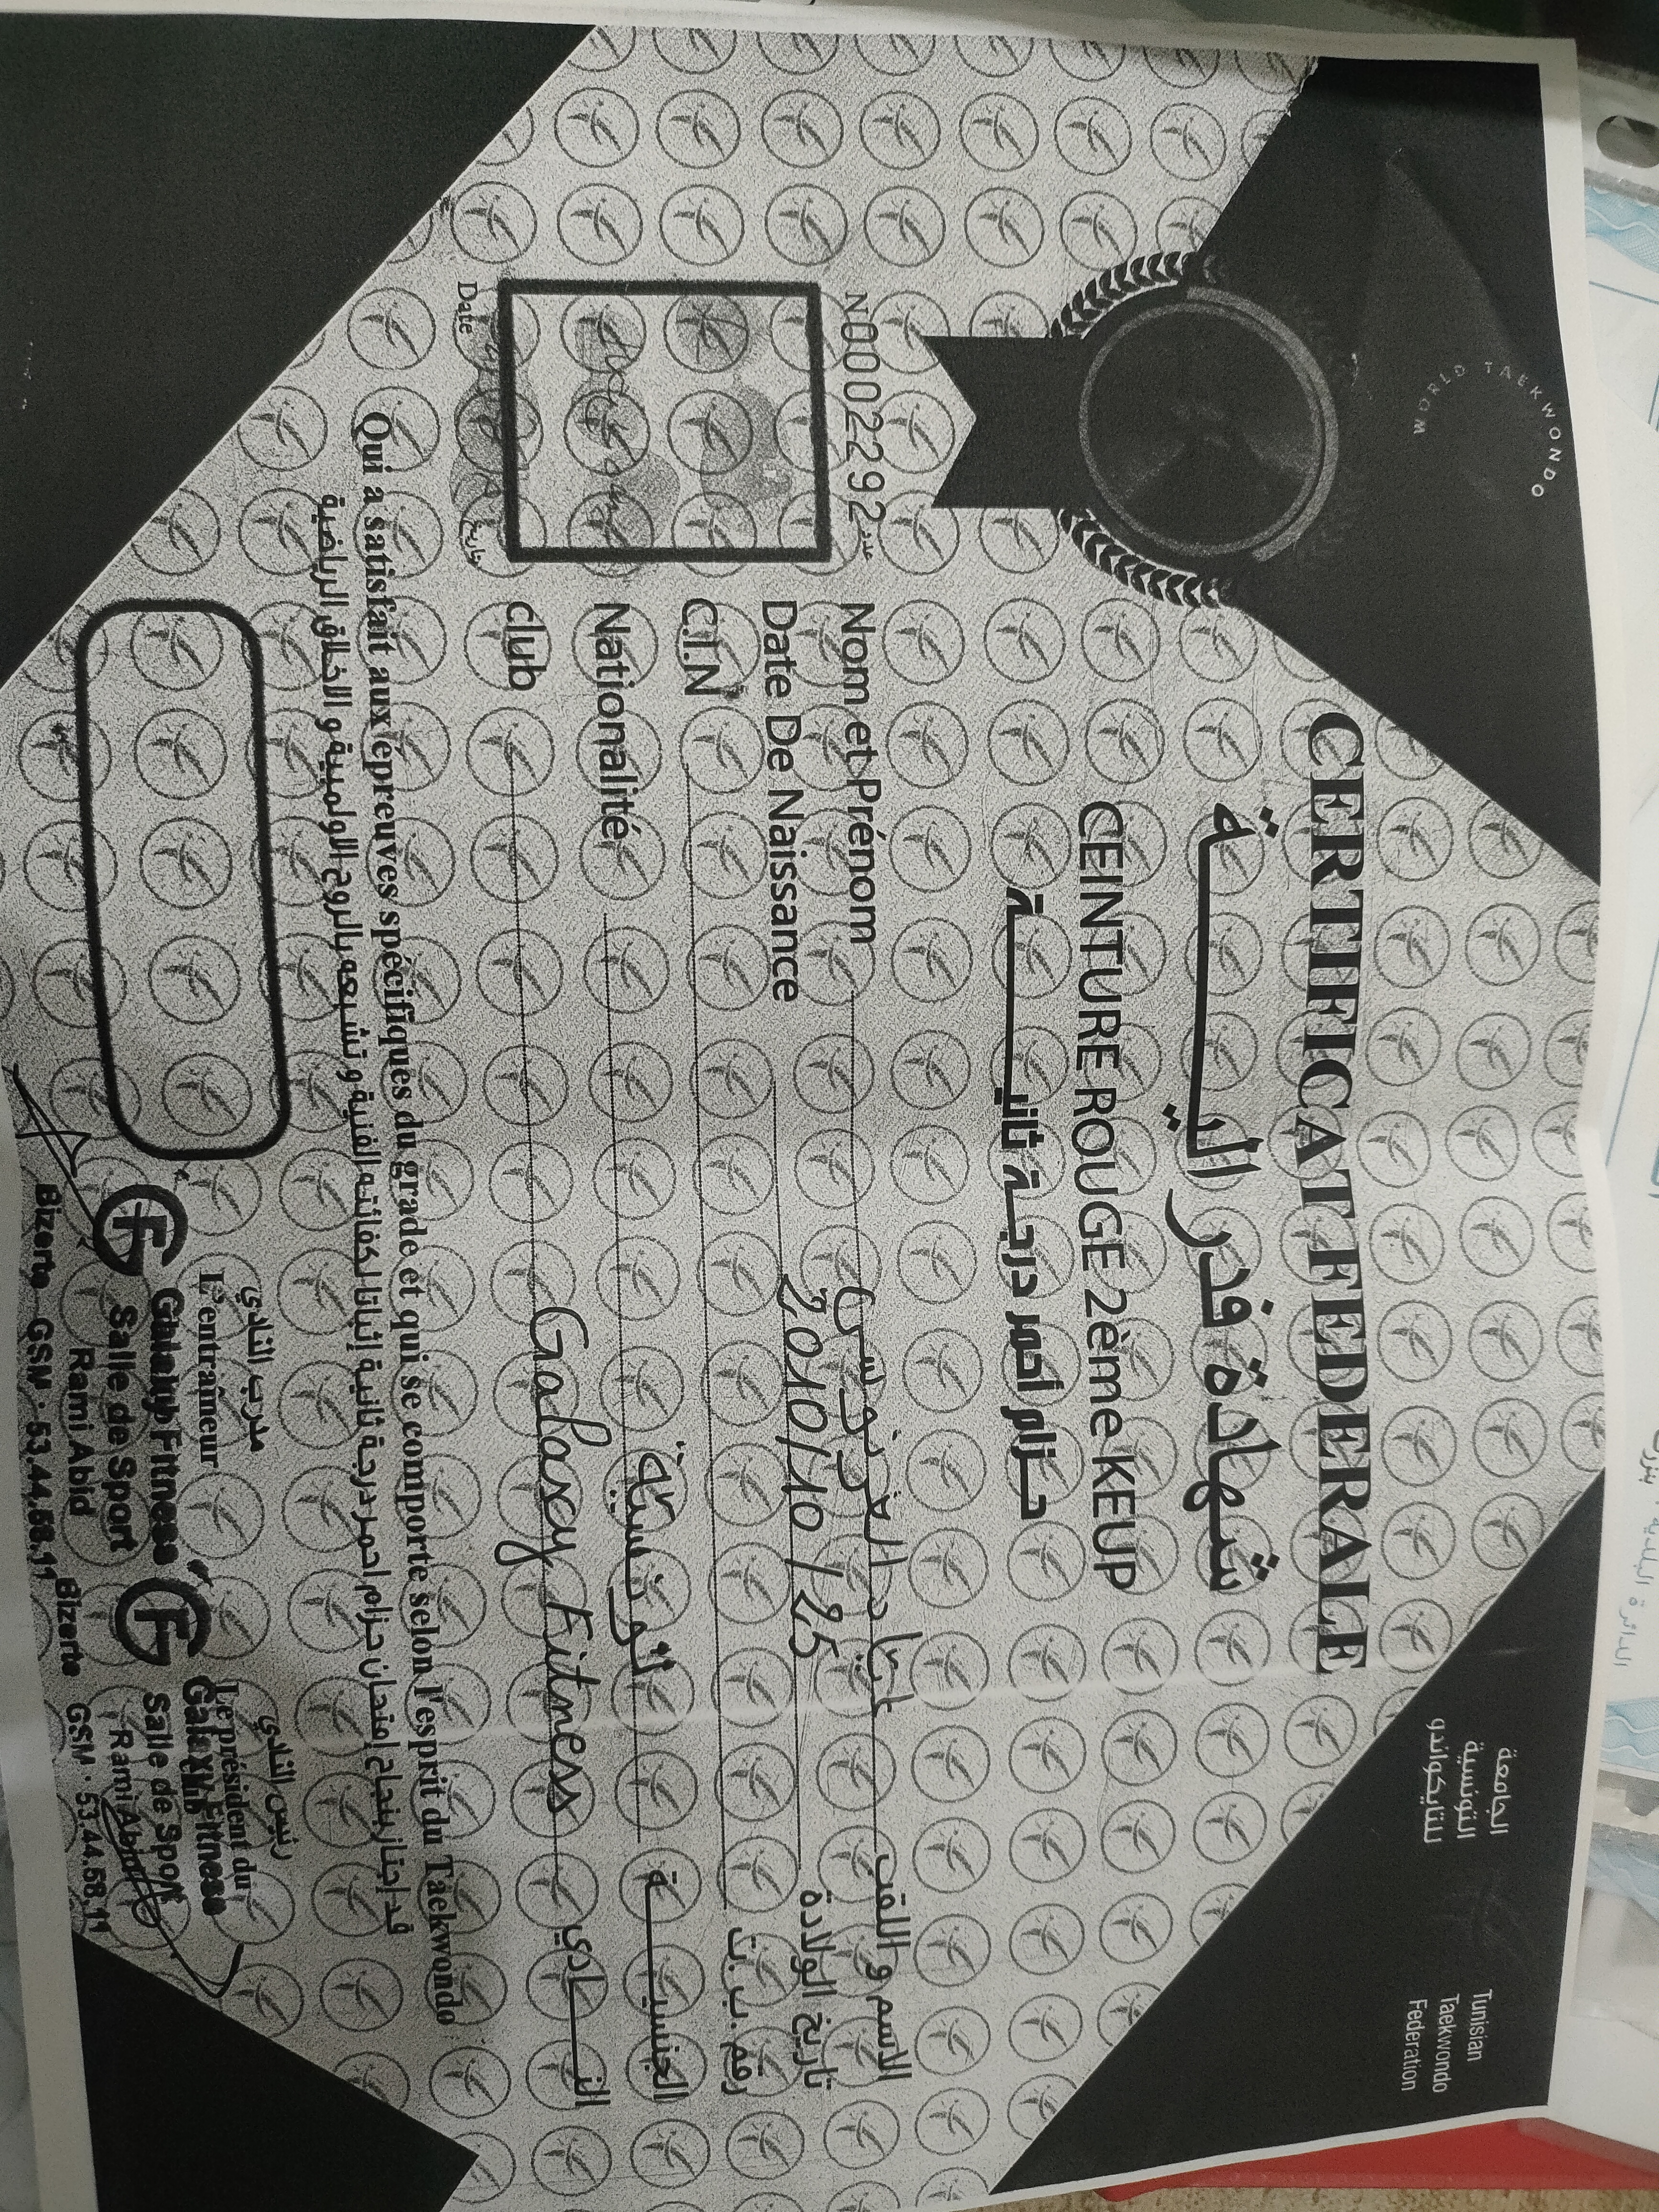 WORLD TAEKWONDO
الجامعة
التونسية
للتايكواندو
Tunisian
Taekwondo
Federation
CERTIFICAT FEDERALE
شهادة فدراليـــــة
CEINTURE ROUGE 2ème KEUP
حـزام أحمر درجـة ثانيـــــة
N00002292 عدد
Nom et Prénom الاسم و اللقب
Date De Naissance 2010/10/25 تاريخ الولادة
C.I.N رقم.ب.ت
Nationalité التونسية الجنسيـــة
club Galaxy Fitness النـــادي
Date تاريخ
Qui a satisfait aux épreuves spécifiques du grade et qui se comporte selon l'esprit du Taekwondo
قد إجتاز بنجاح إمتحان حزام احمر درجة ثانية إثباتا لكفائته الفنية و تشبعه بالروح الاولمبية و الاخلاق الرياضية
مدرب النادي
L'entraîneur
رئيس النادي
Le président du club
Galaxy Fitness
Salle de Sport
Rami Abid
Bizerte GSM : 53.44.58.11
Galaxy Fitness
Salle de Sport
Rami Abid
Bizerte GSM : 53.44.58.11